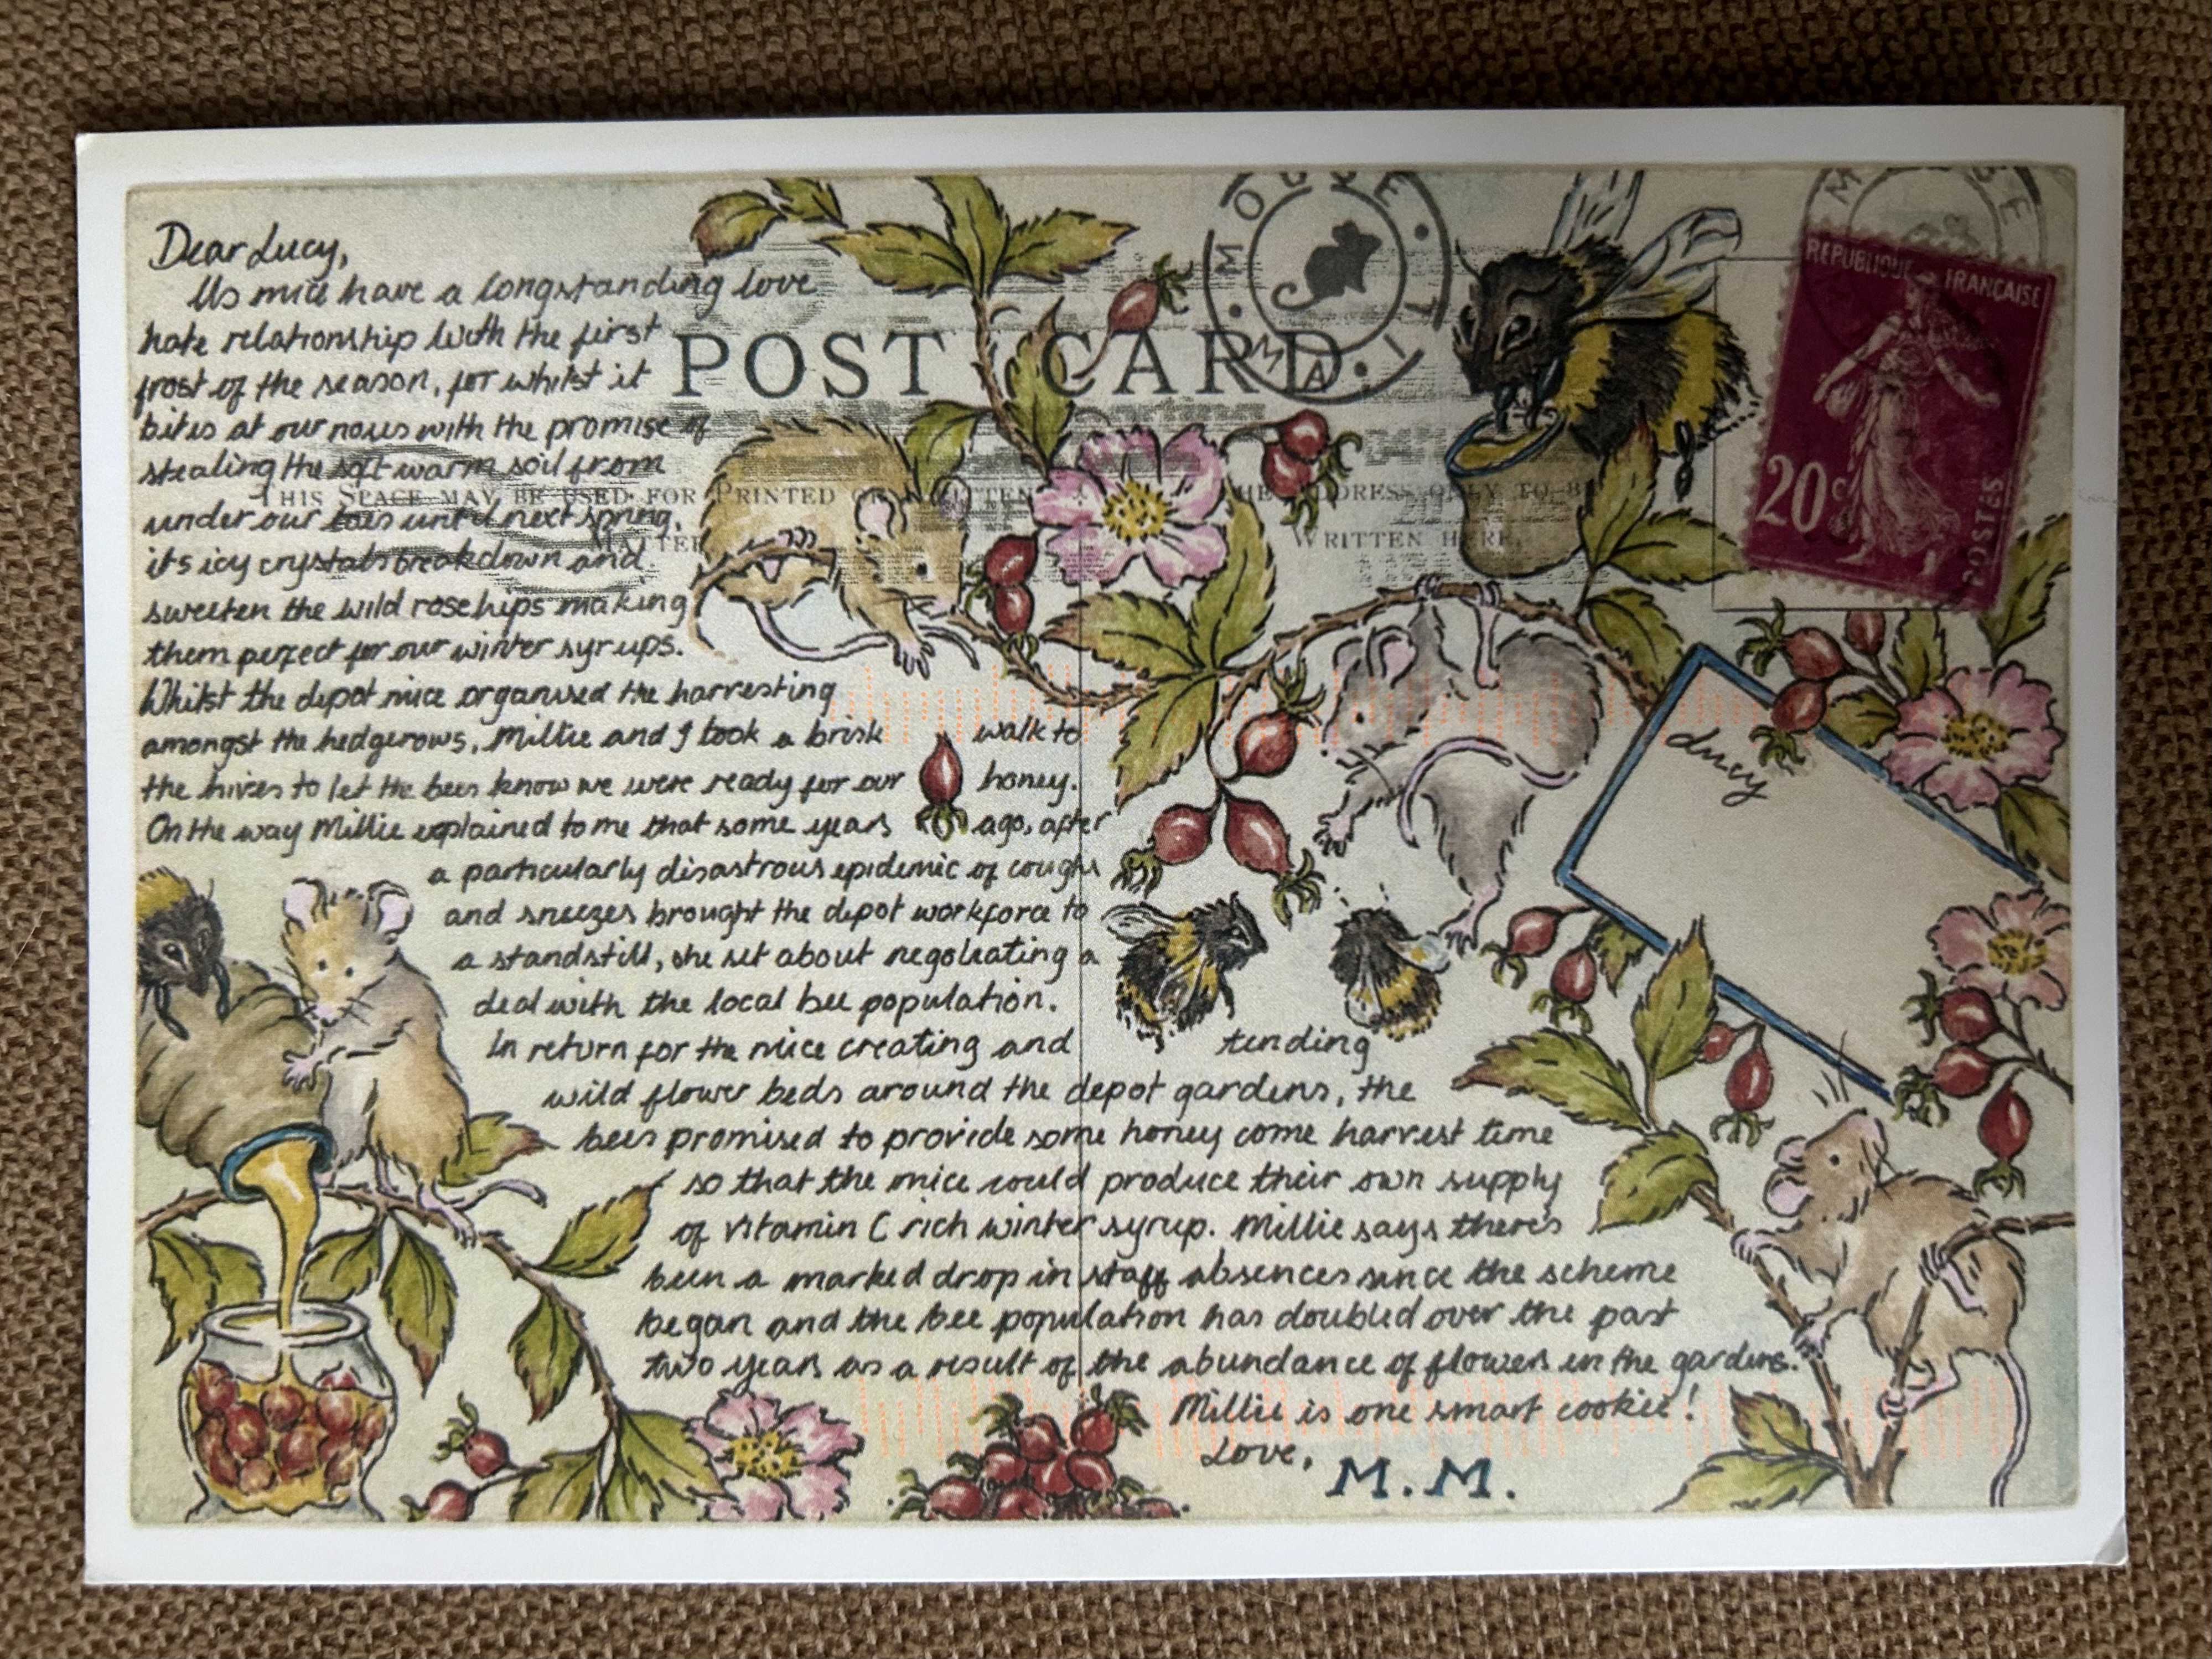 Dear Lucy,
Us mice have a longstanding love
hate relationship with the first
frost of the season, for whilst it
bites at our noses with the promise of
stealing the soft warm soil from
under our toes until next spring,
its icy crystals breakdown and
sweeten the wild rosehips making
them perfect for our winter syrups.
Whilst the depot mice organised the harvesting
amongst the hedgerows, Millie and I took a brisk walk to
the hives to let the bees know we were ready for our honey.
On the way Millie explained to me that some years ago, after
a particularly disastrous epidemic of coughs
and sneezes brought the depot workforce to
a standstill, she set about negotiating a
deal with the local bee population.
In return for the mice creating and tending
wild flower beds around the depot gardens, the
bees promised to provide some honey come harvest time
so that the mice could produce their own supply
of vitamin C rich winter syrup. Millie says there's
been a marked drop in staff absences since the scheme
began and the bee population has doubled over the past
two years as a result of the abundance of flowers in the gardens.
Millie is one smart cookie!
Love,
M.M.
POST CARD
THIS SPACE MAY BE USED FOR PRINTED OR WRITTEN
MATTER
HE ADDRESS ONLY TO B
WRITTEN HERE.
MOUSE
MAIL
M SE
REPUBLIQUE FRANÇAISE
20c
POSTES
Lucy